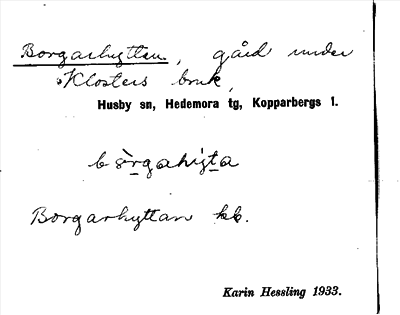 Borgarhyttan, gård under
Klosters bruk,
Husby sn, Hedemora tg, Kopparbergs l.
Borgarhyttan kb.
Karin Hessling 1933.